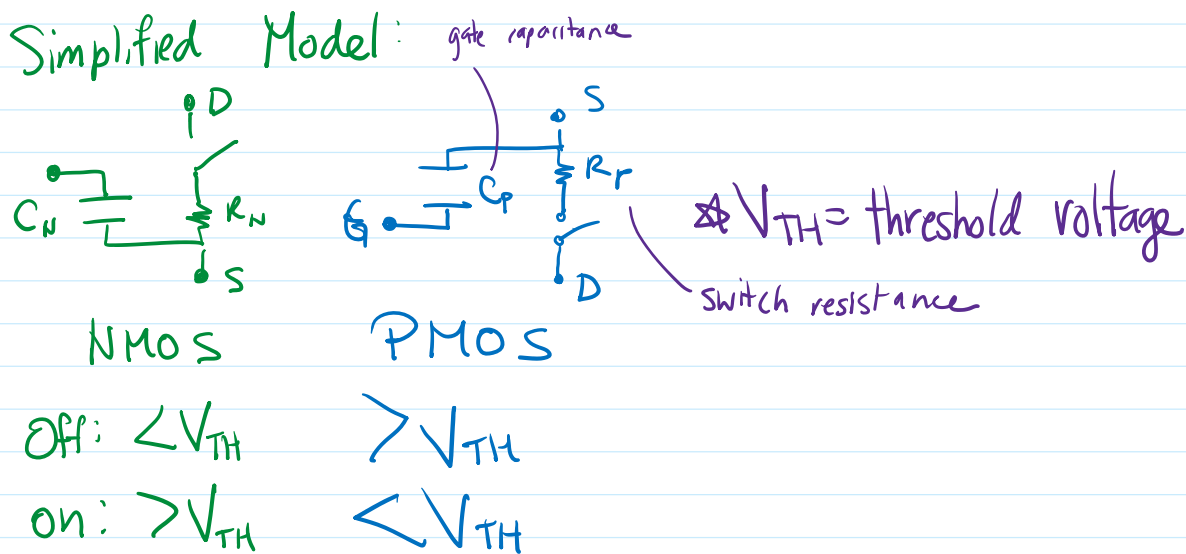 Simplified Model:
gate capacitance
D
S
C_N
R_N
C_P
R_P
G
S
D
☆ V_TH = threshold voltage
switch resistance
NMOS
PMOS
Off: < V_TH
> V_TH
on: > V_TH
< V_TH